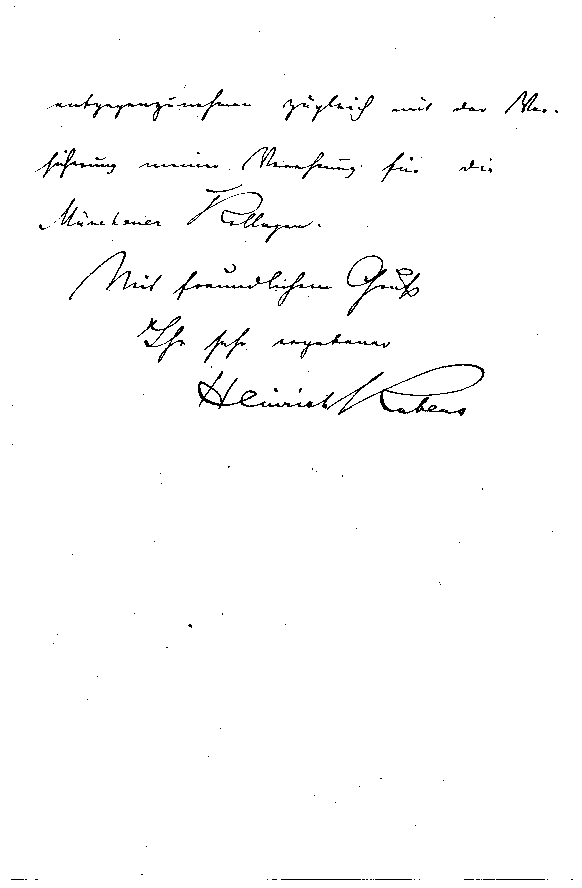 entgegenzunehmen zugleich mit der Ver-
sicherung meiner Verehrung für die
Münchener Kollegen.
Mit freundlichem Gruß
Ihr sehr ergebener
Heinrich Rubens